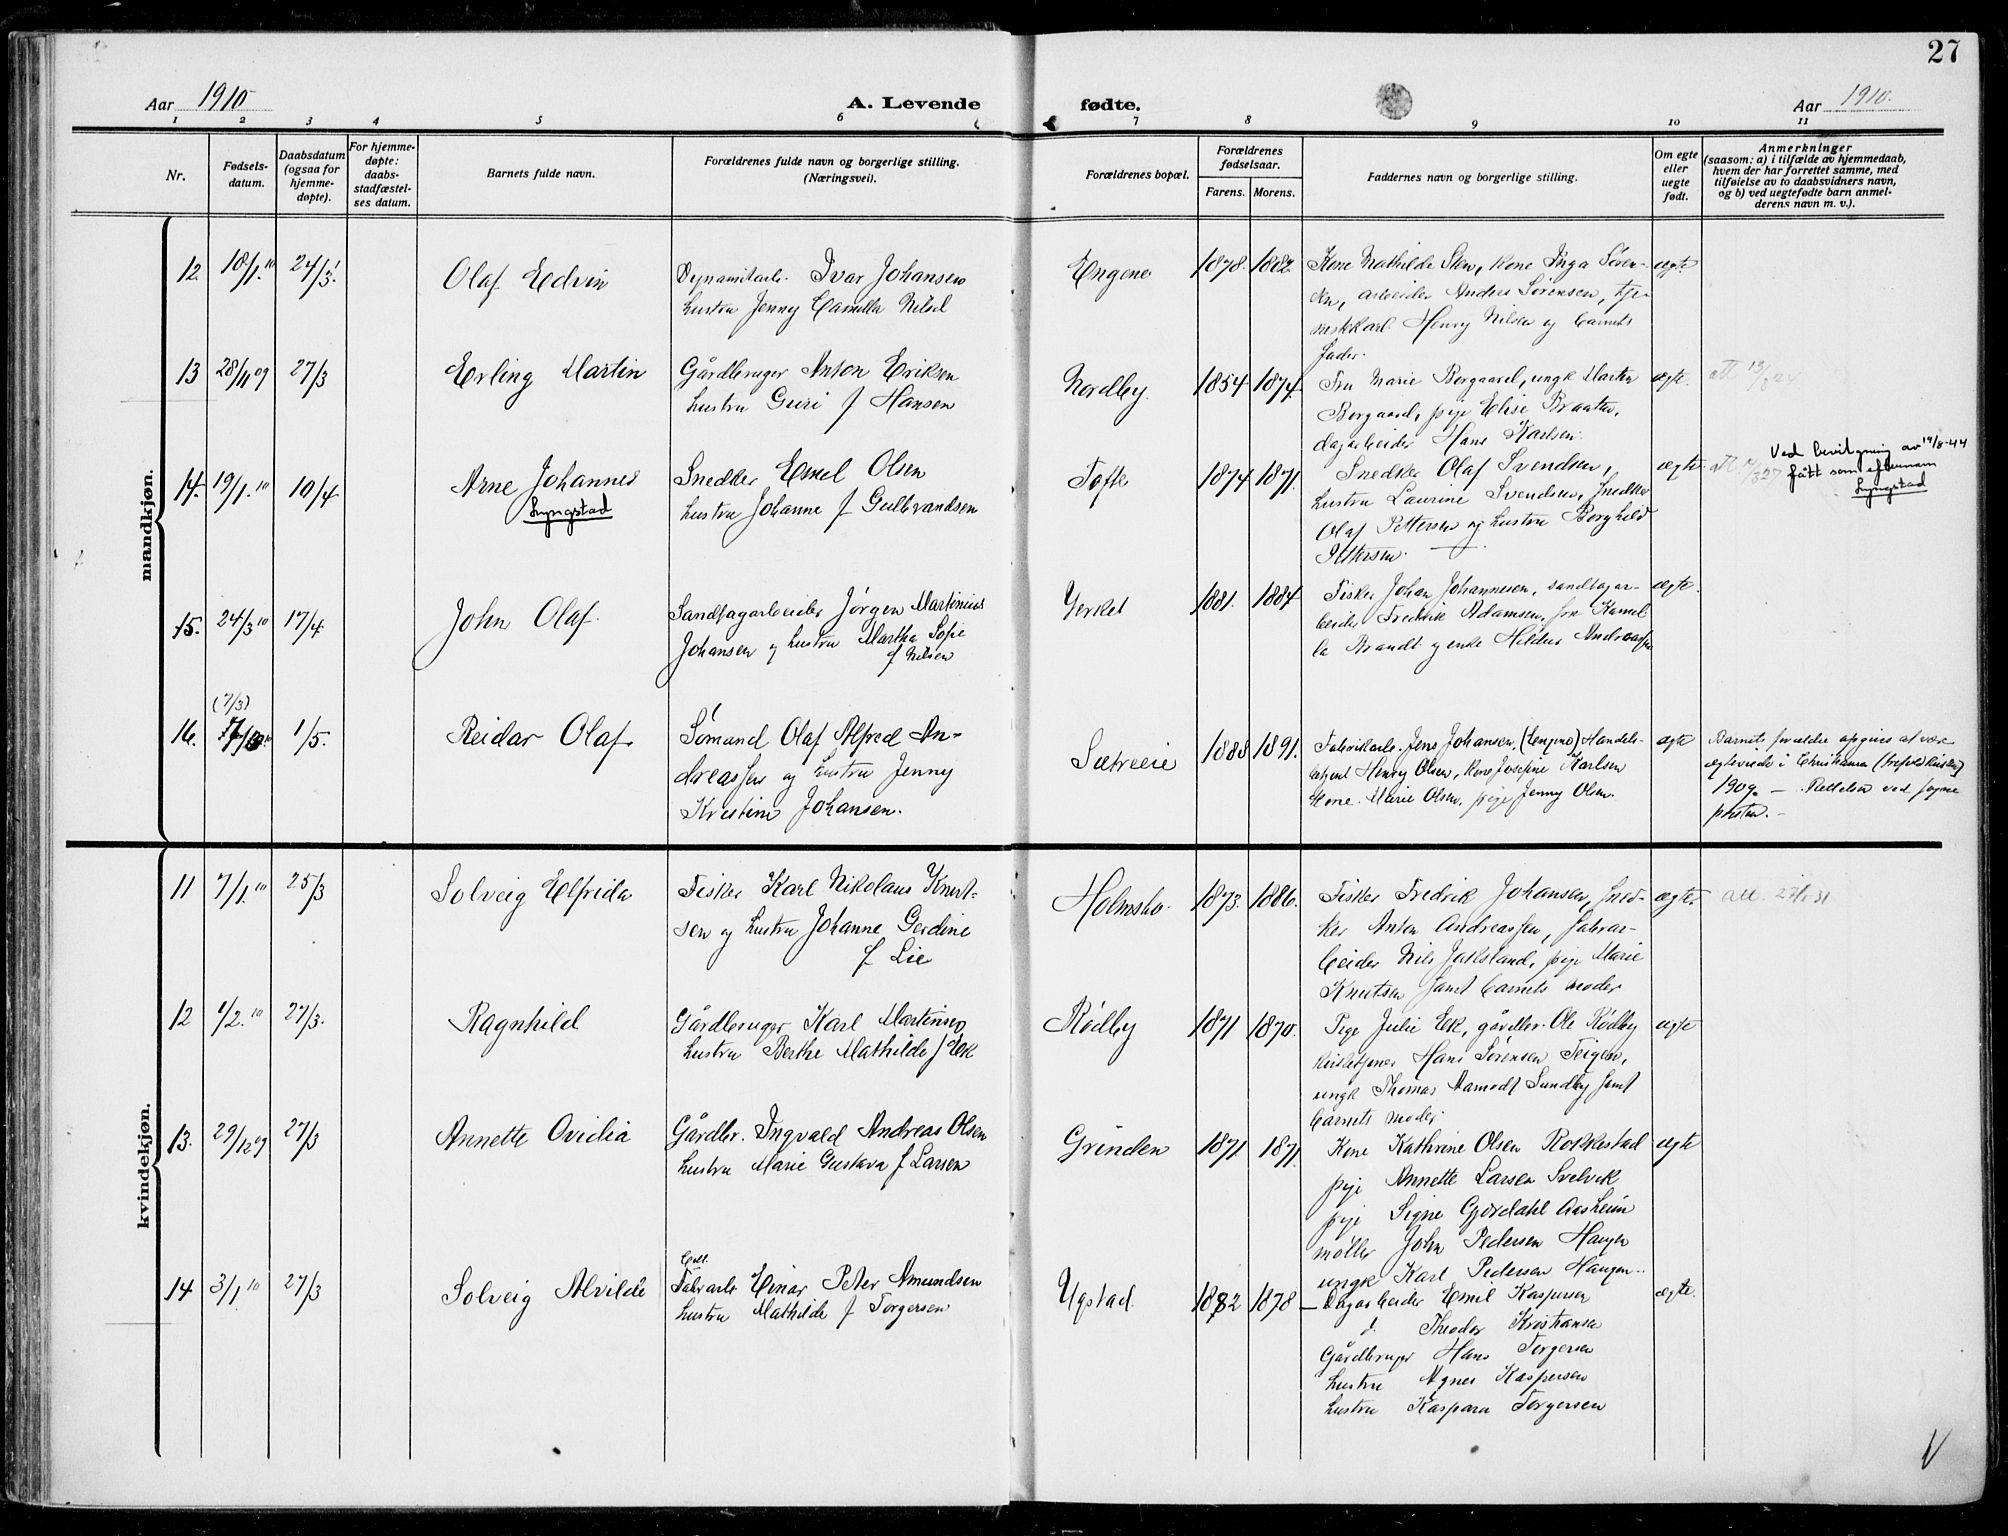 27
Aar 1910
A. Levende fødte.
Aar 1910.
1 2 3 4 5 6 7 8 9 10 11
Nr.
Fødsels-
datum.
Daabsdatum
(ogsaa for
hjemme-
døpte).
For hjemme-
døpte:
daabs-
stadfæstel-
ses datum.
Barnets fulde navn.
Forældrenes fulde navn og borgerlige stilling.
(Næringsvei).
Forældrenes bopæl.
Forældrenes
fødselsaar.
Farens. Morens.
Faddernes navn og borgerlige stilling.
Om egte
eller
uegte
født.
Anmerkninger
(saasom: a) i tilfælde av hjemmedaab,
hvem der har forrettet samme, med
tilføielse av to daabsvidners navn,
og b) ved uegtefødte barn anmel-
derens navn m. v.).
mandkjøn.
12. 18/1. 10 24/3.
Olaf Edvin
Dynamitarb. Ivar Johansen
hustru Jenny Camilla Nilsd
Engene
1878. 1882.
Kone Mathilde Sten, kone Inga Søren-
sen, arbeider Anders Sørensen, tje-
nestekarl Henry Nilsen og barnets
fader.
ægte
13 28/11 09 27/3
Erling Martin
Gårdbruger Anton Eriksen
hustru Guri f Hansen
Nordby.
1854. 1874.
Fru Marie Borgaard, ungk Martin
Borgaard, pige Elise Braaten,
dagarbeider Hans Karlsen.
ægte.
att 13/3 24
14. 19/1. 10 10/4
Arne Johannes
Lyngstad
Snedker Emil Olsen
hustru Johanne f Gulbrandsen
Tofte
1874 1871.
Snedker Olaf Svendsen,
hustru Laurine Svendsen, snedker
Olaf Pettersen og hustru Borghild
Pettersen.
ægte.
Ved bevilgning av 14/8-44
fått som efternavn
Lyngstad
15. 24/3 10 17/4.
John Olaf.
Sandtagarbeider Jørgen Martinius
Johansen og hustru Martha Sofie
f Nilsen
Verket
1881. 1884.
Fisker Johan Johannesen, sandtagar-
beider Fredrik Adamsen, fru Kamil-
la Brandt og enke Hilder Andreassen
ægte.
(7/3)
16. 1/5.
Reidar Olaf.
Sømand Olaf Alfred An-
dreassen og hustru Jenny
Kristine Johansen.
Sætreeie
1888 1891.
Fabrikarb. Jens Johansen, (Engene) Handels-
betjent Henry Olsen, kone Josefine Karlsen
Kone. Marie Olsen, pige Jenny Olsen.
ægte
Barnets forældre opgives at være
ægteviede i Christiania 
1909. — Rettelse ved sogne
presten. –
kvindekjøn.
11 7/1. 10 25/3
Solveig Elfrida
Fisker Karl Nikolaus Knut-
sen og hustru Johanne Gerdine
f Lie
Holmsbo.
1873. 1886.
Fisker Fredrik Johansen, sned-
ker Anton Andreassen, fabrar-
beider Nils Jaksland, pige Marie
Knutsen samt barnets moder
ægte.
12 1/2. 10 27/3.
Ragnhild
Gårdbruger Karl Martinsen
hustru Berthe Mathilde f Ek
Rødby
1871 1870.
Pige Julie Ek, gårdbr. Ole Rødby
kirketjener Hans Sørensen Teigen,
ungk Thomas Aamodt Sundby samt
barnets moder.
ægte
13. 29/12 09 27/3
Annette Ovidia
Gårdbr. Ingvald Andreas Olsen
hustru Marie Gustava f Larsen
Grinden
1871 1871.
Kone Kathrine Olsen Rokkestad
pige Annette Larsen Svelvik
pige Signe Gjørdahl Aasheim
møller John Pedersen Haugen
ungk Karl Pedersen Haugen..
ægte
14 3/1 10 27/3
Solveig Alvilde
Fabrarb. Einar Peter Amundsen
hustru Mathilde f Torgersen
Ugstad.
1882 1878
– Dagarbeider Emil Kaspersen
d. Theodor Kristiansen
Gårdbruger Hans Torgersen
hustru Agnes Kaspersen
hustru Kaspara Torgersen
ægte.